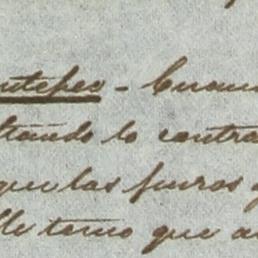 utepec - Cuan
ltando lo contra
que las furos
lle temo que a